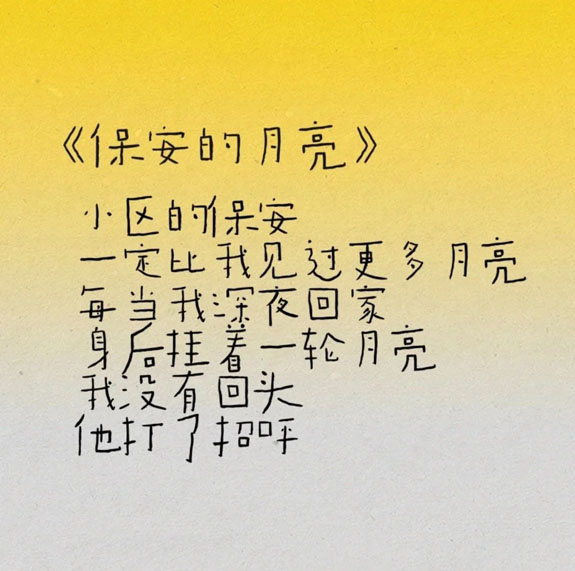 《保安的月亮》
小区的保安
一定比我见过更多月亮
每当我深夜回家
身后挂着一轮月亮
我没有回头
他打了招呼